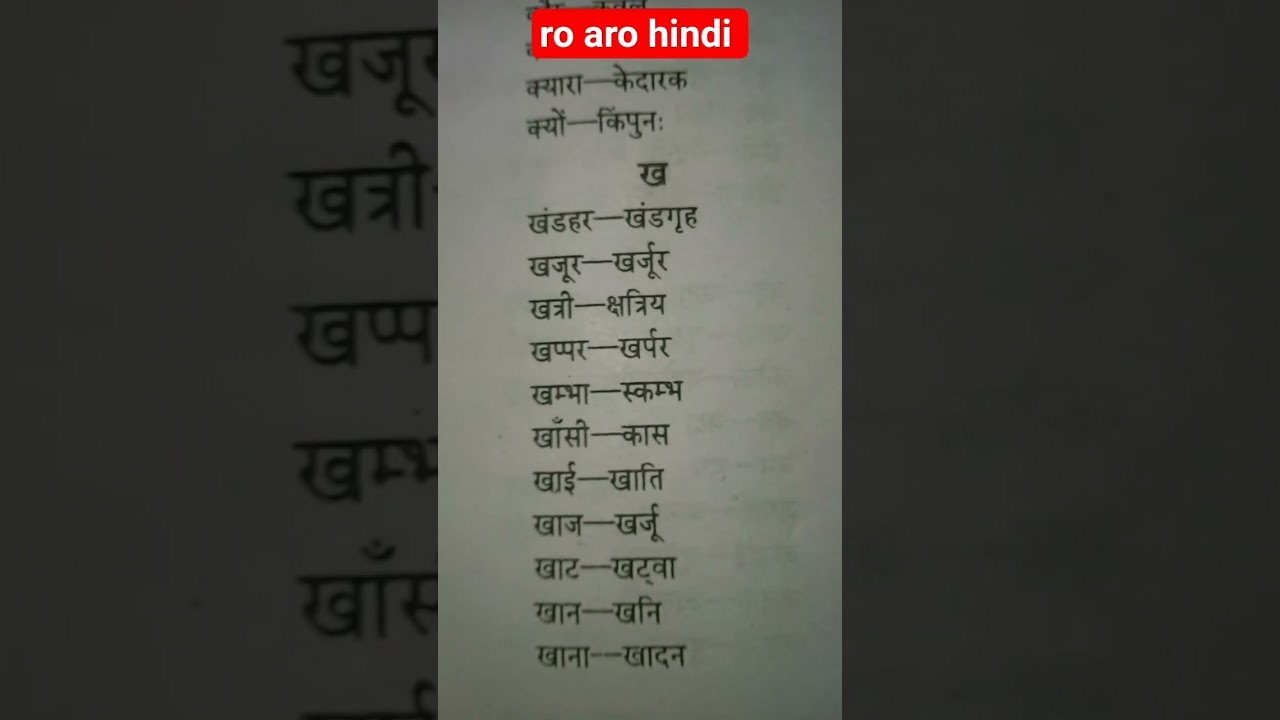 ro aro hindi
क्यारा—केदारक
क्यों—किंपुनः
ख
खंडहर—खंडगृह
खजूर—खर्जूर
खत्री—क्षत्रिय
खप्पर—खर्पर
खम्भा—स्कम्भ
खाँसी—कास
खाई—खाति
खाज—खर्जू
खाट—खट्वा
खान—खनि
खाना--खादन